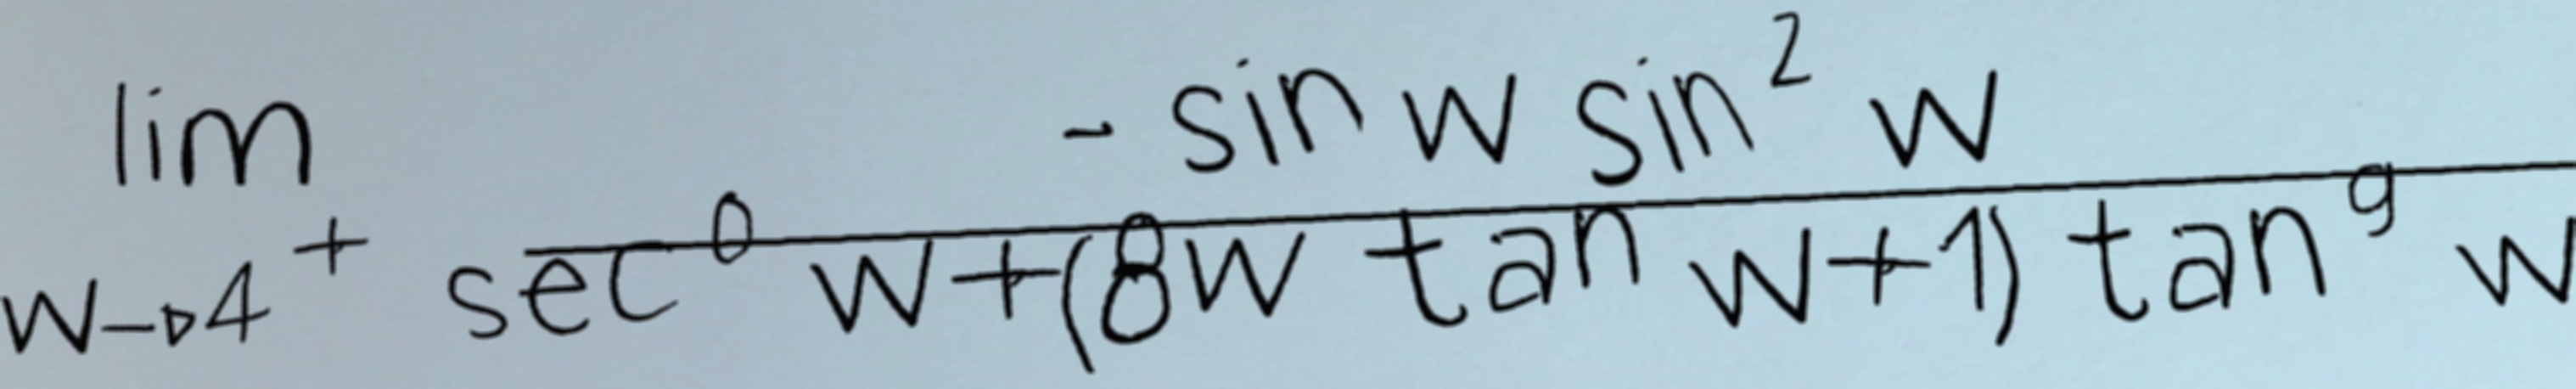 \lim_{w \to 4^+} \frac{-\sin w \sin^2 w}{\sec^0 w + (8w \tan w + 1) \tan^9 w}